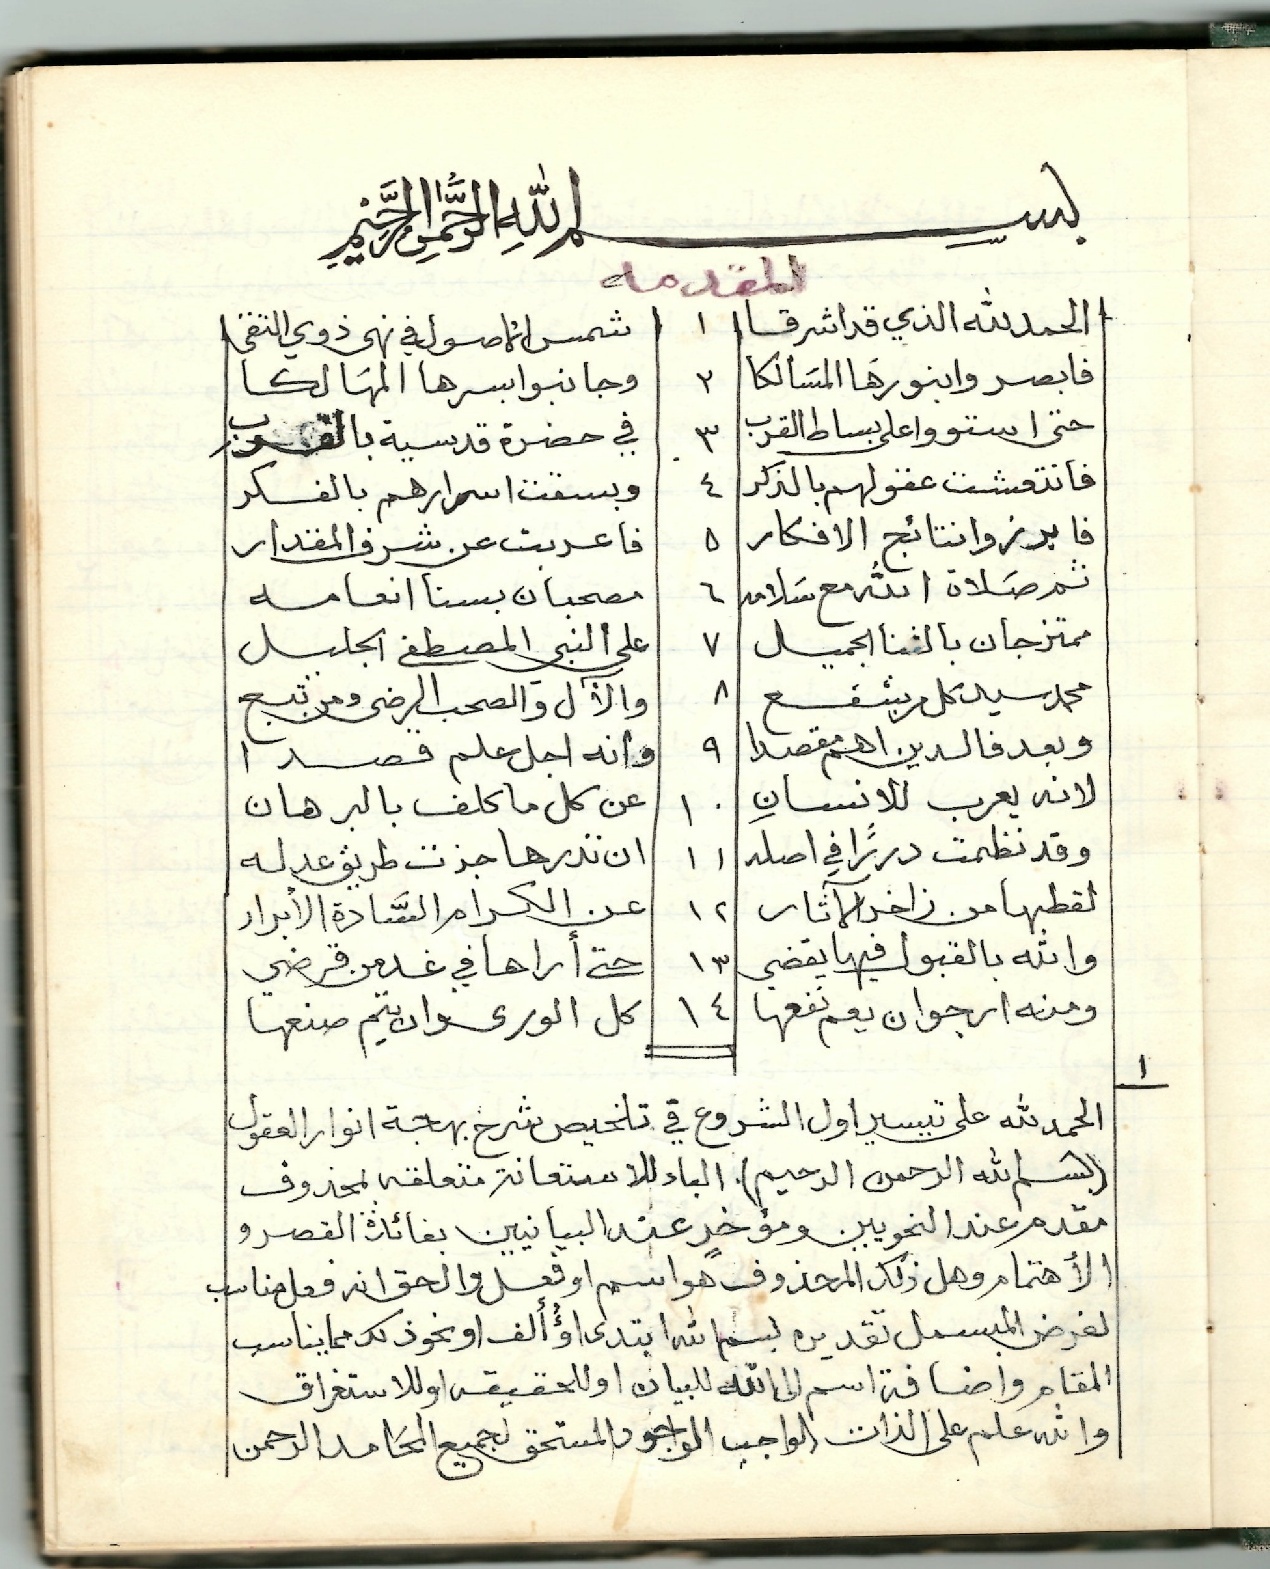 بسم الله الرحمن الرحيم
المقدمه
الحمد لله الذي قد اشرقا ١ شمس الاصول في نهى ذوي التقى
فابصروا بنورها المسالكا ٢ وجانبوا بسرها المهالكا
حتى استووا على بساط القرب ٣ في حضرة قدسية بالقرب
فانتعشت عقولهم بالذكر ٤ وبسقت اسرارهم بالفكر
فابرزوا نتائج الافكار ٥ فاعربت عن شرف المقدار
ثم صلاة الله مع سلامه ٦ مصحبان بسنا انعامه
ممتزجان بالثنا الجميل ٧ على النبي المصطفى الجليل
محمد سيد كل من شفع ٨ والآل والصحب الرضى ومن تبع
وبعد فالدين اهم مقصدا ٩ وانه اجل علم قصدا
لانه يعرب للانسانِ ١٠ عن كل ما كلف بالبرهان
وقد نظمت دررًا في اصله ١١ ان تدرها جزت طريق عدله
لقطبها من زاخر الآثار ١٢ عن الكرام السَّادة الأبرار
والله بالقبول فيها يقضي ١٣ حتى أراها في غد من قرضي
ومنه ارجو ان يعم نفعها ١٤ كل الورى وان يتم صنعها
١
الحمد لله على تيسير اول الشروع في تلخيص شرح بهجة انوار العقول
(بسم الله الرحمن الرحيم) الباء للاستعانة متعلقه بمحذوف
مقدم عند النحويين ومؤخرٍ عند البيانيين بفائدة القصر و
الأهتمام وهل ذلك المحذوف هو اسم او فعل والحق انه فعل مناسب
لغرض المبسمل تقديره بسم الله ابتدى اؤألف او نحو ذلك مما يناسب
المقام واضافة اسم الى الله للبيان او للحقيقه او للاستغراق
والله علم على الذات الواجب الوجود المستحق لجميع المحامد الرحمن